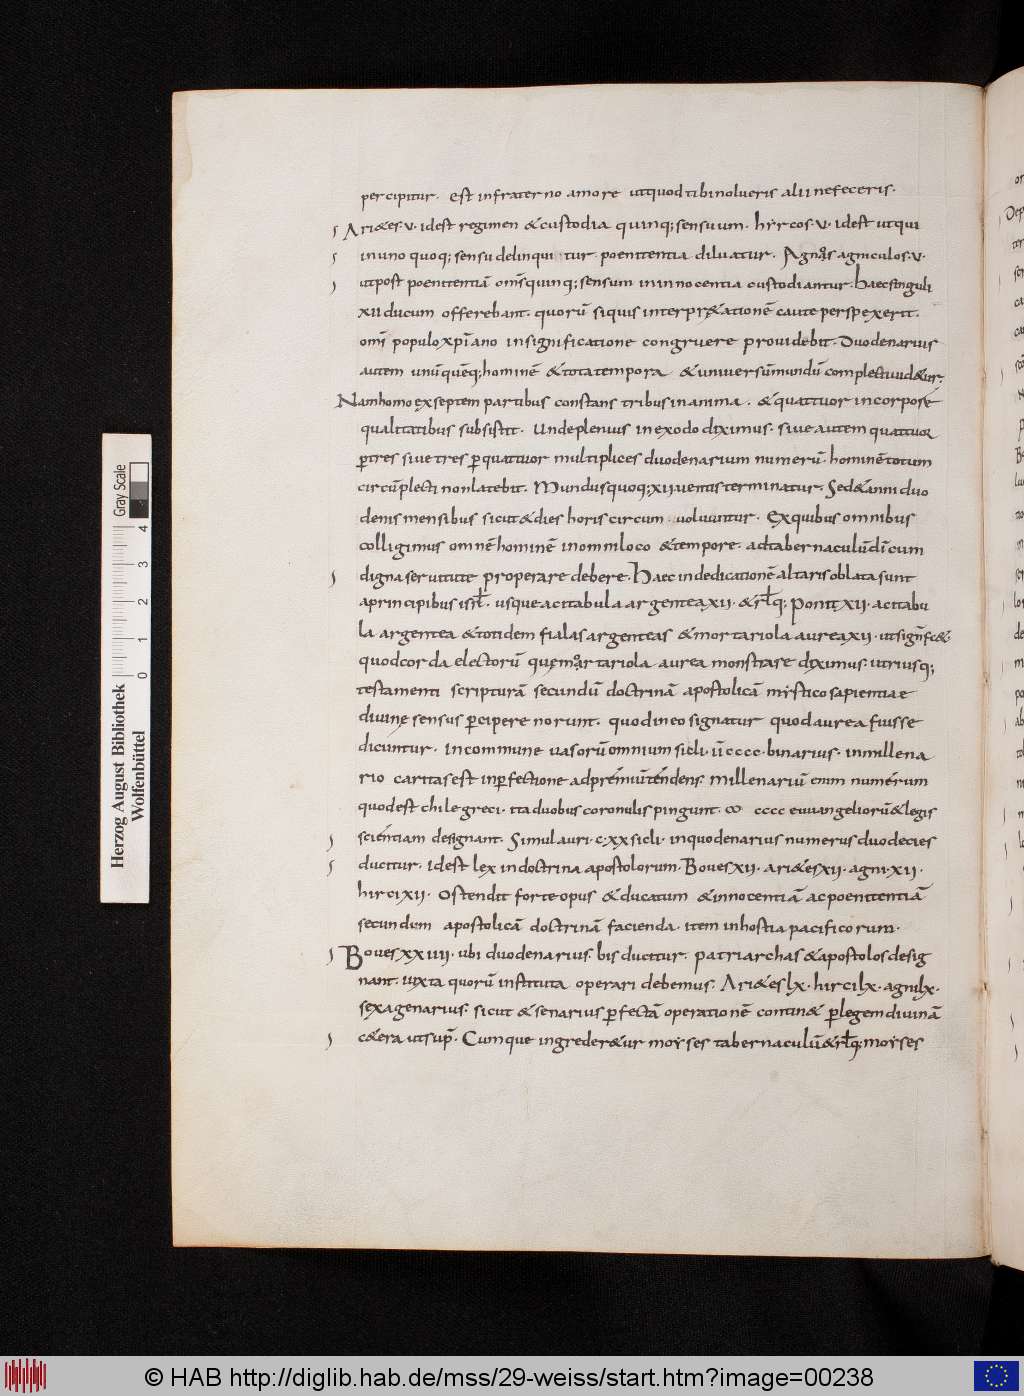 percipitur. Est in fraterno amore ut quod tibi nolueris alii nefeceris.
Ari&es. v. id est regimen & custodia quinq; sensuum. hyrcos. v. id est ut qui
in uno quoq; sensu delinqui tur. poenitentia diluatur. Agnos agniculos. v.
ut post poenitentiā om̄s quinq; sensum in innocentia custodiantur. Haec singuli
xii ducum offerebant. quorū siquis interpr&ationē caute perspexerit.
om̄i populo xp̄iano in significatione congruere providebit. Duodenarius
autem unūquēq; hominē & tota tempora & universū mundū complecti vid&ur.
Nam homo ex septem partibus constans tribus in anima. & quattuor in corpore
qualitatibus subsistit. Unde plenius in exodo diximus. sive autem quattuor
p̄ tres sive tres p̄ quattuor multiplices duodenarium numerū. hominē totum
circūplecti non latebit. Mundus quoq; xii ventis terminatur. Sed & anni duo
denis mensibus sicut & dies horis circum voluuntur. Ex quibus omnibus
colligimus omnē hominē in omni loco & tempore. ad tabernaculū dī cum
digna servitute properare debere. Haec in dedicationē altaris oblata sunt
a principibus isrl̄. usque acitabula argentea xii. & rl̄q; Ponit xii. acitabu
la argentea & totidem fialas argenteas & mortariola aurea xii. ut signific&
quod corda electorū quę mortariola aurea monstrare diximus. utriusq;
testamenti scripturā secundū doctrinā apostolicā mystico sapientiae
divinę sensus p̄cipere norunt. quod in eo signatur quod aurea fuisse
dicuntur. in commune vasorū omnium sicli. īī cccc. binarius. in millena
rio caritas est in p̄fectione ad premiū tendens. Millenariū enim numerum
quod est chile greci. ita duobus coronulis pingunt. ∞ cccc euuangeliorū & legis
scientiam designant. Simul auri. c. xx sicli. in quo denarius numerus duodecies
ducitur. id est lex in doctrina apostolorum. Boves xii. ari&es xii. agni. xii.
hirci xii. Ostendit forte opus & ducatum & innocentiā ac poenitentiā
secundum apostolicā doctrinā facienda. item in hostia pacificorum.
Boves xxiiii. ubi duodenarius. bis ducitur. patriarchas & apostolos desig
nant. iuxta quorū instituta operari debemus. Ari&es lx. hirci lx. agni lx.
sexagenarius. sicut & senarius p̄fectā operationē contin& p̄ legem divinā
c&era ut sup̄. Cumque ingreder&ur moyses tabernaculū & rl̄q; moyses
Herzog August Bibliothek
Wolfenbüttel
Gray Scale
0 1 2 3 4
© HAB http://diglib.hab.de/mss/29-weiss/start.htm?image=00238